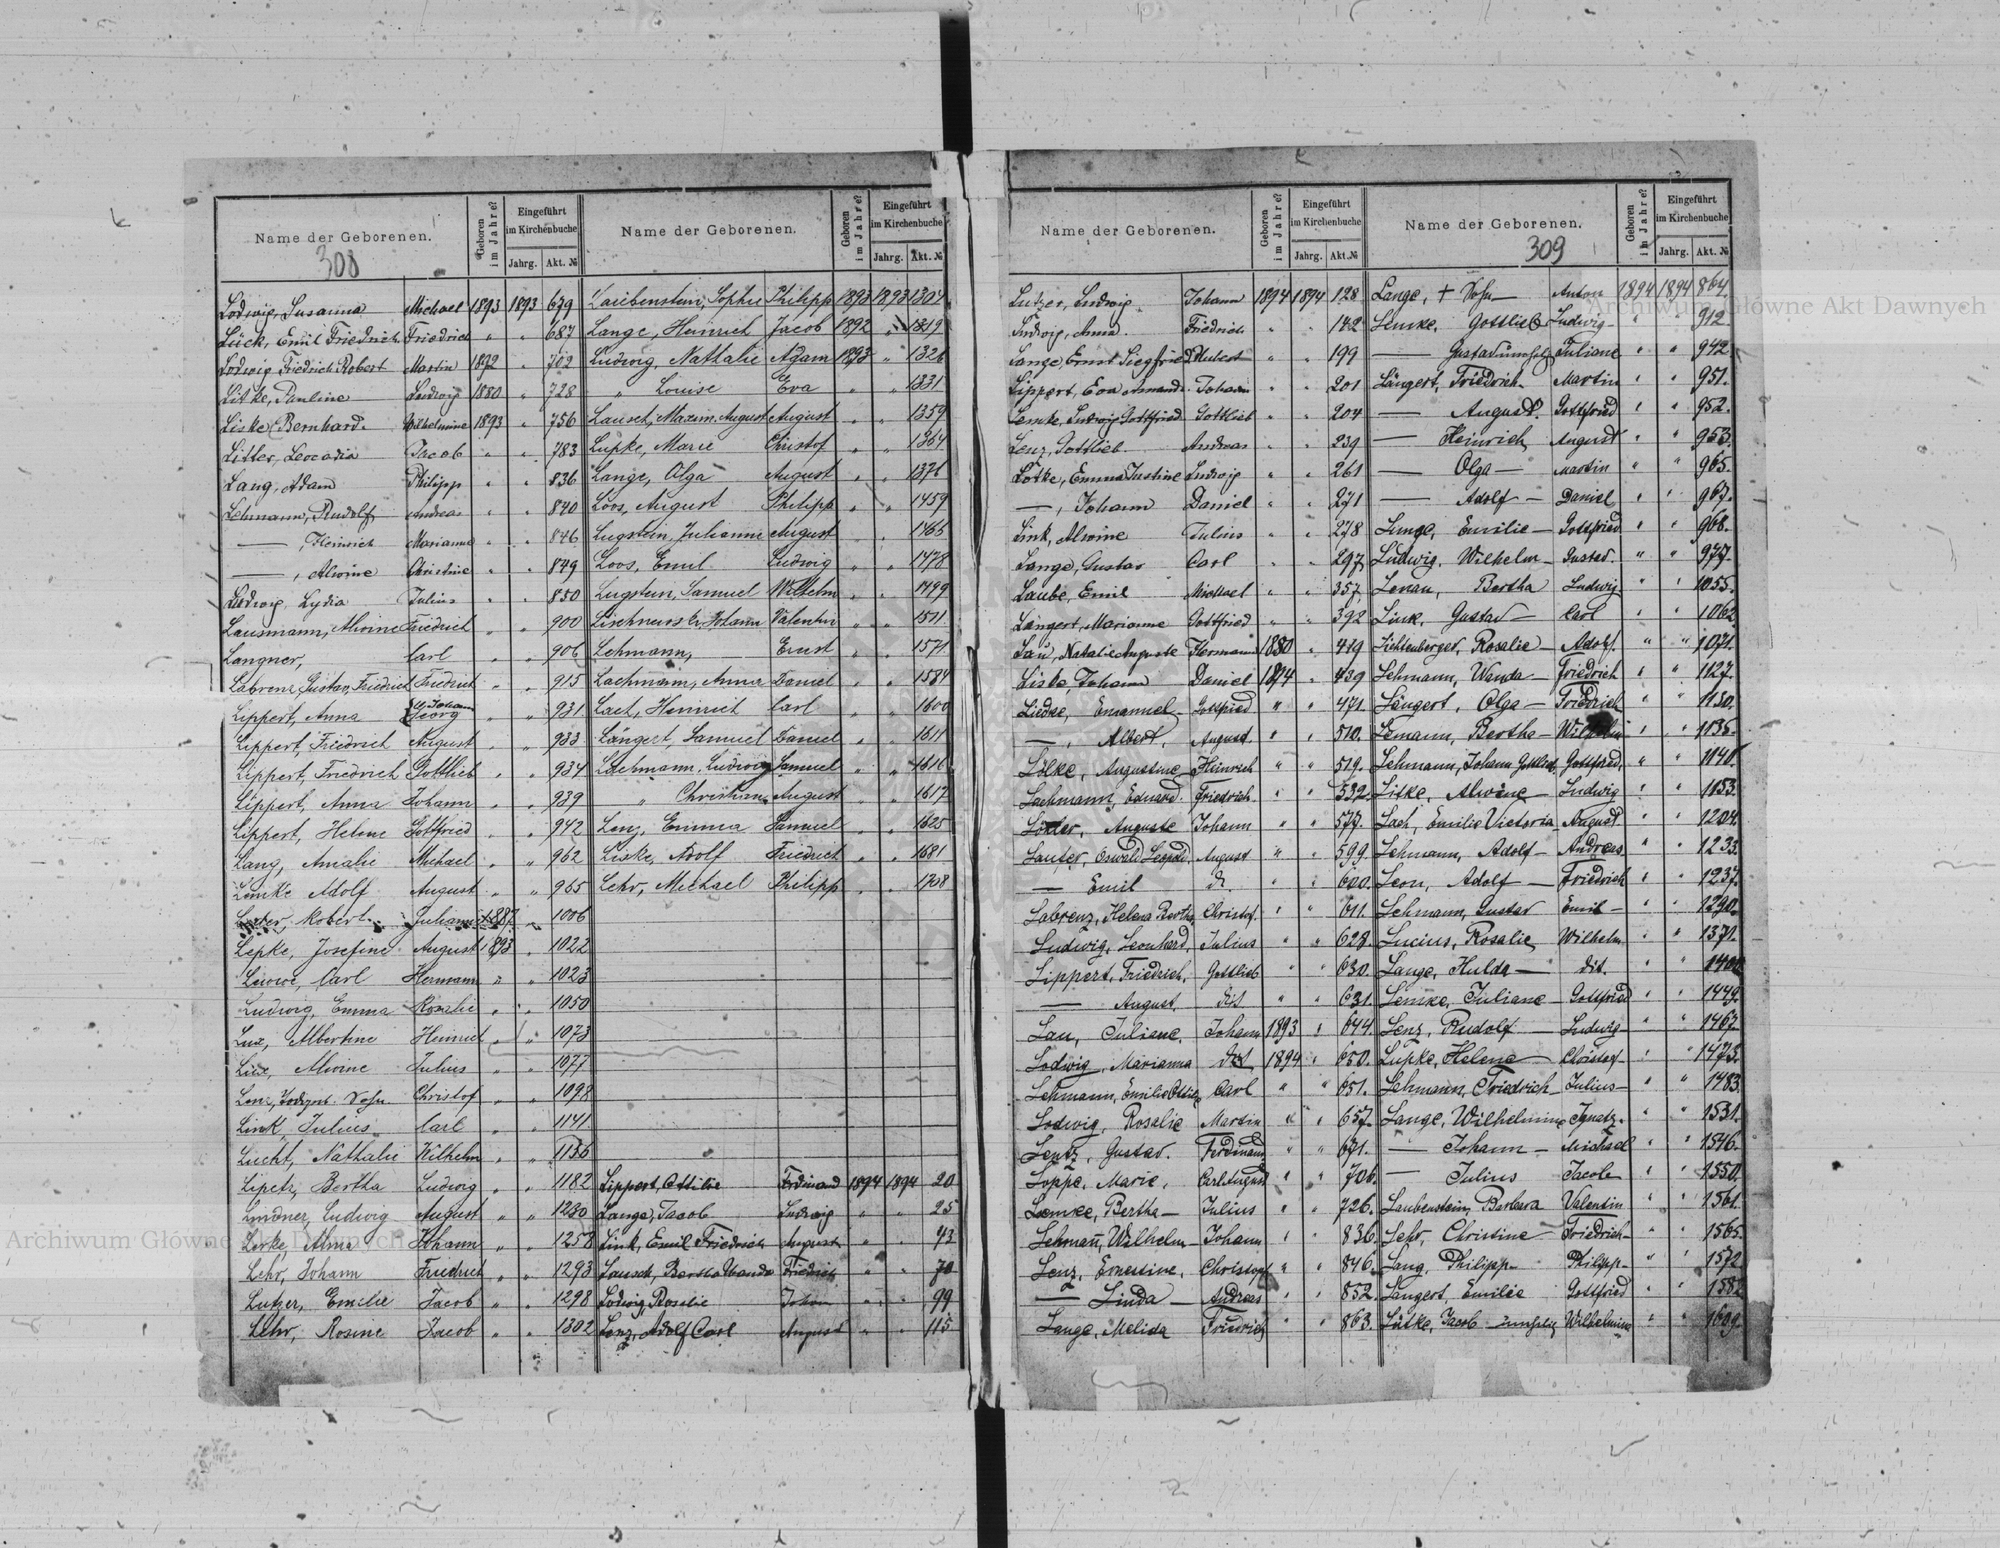 Name der Geborenen. Geboren im Jahre? Eingeführt im Kirchenbuche Jahrg. Akt. №
308
Lodwig, Susanna Michael 1893 1893 679
Lück, Emil Friedrich Friedrich " " 687
Lodwig Friedrich Robert Martin 1892 " 702
Litke, Pauline Ludwig 1880 " 728
Liske, Bernhard. Wilhelmine 1893 " 756
Litter, Leocadia Jacob " " 783
Lang, Adam Philipp " " 836
Lehmann, Rudolf Andreas " " 840
—, Heinrich Marianne " " 846
—, Alwine Christine " " 849
Ludwig, Lydia Julius " " 850
Lausmann, Alwine Friedrich " " 900
Langner, Carl " " 906
Labrenz Gustav, Friedrich Friedrich " " 915
Lippert, Anna Johann Georg " " 931
Lippert, Friedrich August " " 933
Lippert, Friedrich Gottlieb " " 934
Lippert, Anna Johann " " 939
Lippert, Helene Gottfried " " 942
Lang, Amalie Michael " " 962
Lemke Adolf August " " 965
Robert. Julianne 1887 " 1006
Lepke, Josefine August 1893 " 1022
Carl Hermann " " 1023
Ludwig, Emma Rosalie " " 1050
Lux, Albertine Heinrich " " 1073
Alwine Julius " " 1077
Lenz, Sohn Christof " " 1098
Link, Julius Carl " " 1141
Lucht, Nathalie Wilhelm " " 1156
Bertha Ludwig " " 1182
Lindner, Ludwig August " " 1230
Lerke, Alma Johann " " 1258
Lehr, Johann Friedrich " " 1293
Lutzer, Emilie Jacob " " 1298
Lehr, Rosine Jacob " " 1302
Name der Geborenen. Geboren im Jahre? Eingeführt im Kirchenbuche Jahrg. Akt. №
Laibenstein, Sophie Philipp 1893 1893 1304
Lange, Heinrich Jacob 1892 " 1319
Ludwig, Nathalie Adam 1893 " 1326
" Louise Eva " " 1331
Lausch, Maxim. August August " " 1359
Lupke, Marie Christof " " 1364
Lange, Olga August " " 1376
Loos, August Philipp " " 1459
Lugstein, Julianne August " " 1466
Loos, Emil Ludwig " " 1478
Lugstein, Samuel Wilhelm " " 1499
Johann Valentin " " 1511
Lehmann, Ernst " " 1571
Lachmann, Anna Daniel " " 1584
Heinrich Carl " " 1600
Längert, Samuel Daniel " " 1611
Lachmann, Ludwig Samuel " " 1616
" Christian August " " 1617
Lenz, Emma Samuel " " 1625
Liske, Adolf Friedrich " " 1681
Lehr, Michael Philipp " " 1708
Lippert, Ottilie Ferdinand 1894 1894 20
Lange, Jacob Ludwig " " 25
Link, Emil Friedrich August " " 43
Lausch, Bertha Wanda Friedrich " " 70
Lodwig, Rosalie Johann " " 99
Lenz, Adolf Carl August " " 115
Name der Geborenen. Geboren im Jahre? Eingeführt im Kirchenbuche Jahrg. Akt. №
Lutzer, Ludwig Johann 1894 1894 128
Ludwig, Anna. Friedrich " " 142
Lange, Ernst Siegfried Hubert " " 199
Lippert, Eva Amanda Johann " " 201
Lemke, Ludwig Gottfried Gottlieb " " 204
Lenz, Gottlieb. Andreas " " 239
Lötke, Emma Justine Ludwig " " 261
—, Johann Daniel " " 271
Link, Alwine Julius " " 278
Lange, Gustav Carl " " 297
Laube, Emil Michael " " 357
Längert, Marianne Gottfried " " 392
Lau, Natalie Auguste Hermann 1880 " 419
Liske, Johann Daniel 1894 " 439
Liedke, Emanuel Gottfried " " 471.
—, Albert, August. " " 510.
Lölke, Augustine Heinrich " " 519.
Lachmann, Eduard. Friedrich " " 532.
Auguste Johann " " 577.
Lauter, Oswald Leopold, August " " 599.
— Emil " " 600.
Labrenz, Helena Bertha, Christof. " " 611.
Ludwig, Leonhard, Julius " " 628.
Lippert, Friedrich, Gottlieb " " 630.
— August, dit " " 631.
Lau, Juliane, Johann 1893 " 644.
Lodwig, Marianna dit 1894 " 650.
Lehmann, Emilie Ottilie Carl " " 651.
Lodwig, Rosalie Martin " " 657.
Lentz, Gustav. Ferdinand " " 671.
Loppe, Marie, Carl August " " 706.
Lemke, Bertha— Julius " " 726.
Lehmañ, Wilhelm— Johann " " 836.
Lenz, Ernestine, Christoph " " 846.
— Linda — Andreas " " 852.
Lange, Melida Friedrich " " 863.
Name der Geborenen. Geboren im Jahre? Eingeführt im Kirchenbuche Jahrg. Akt. №
309
Lange, † Sohn — Anton 1894 1894 864.
Lemke, Gottlieb Ludwig— 912.
— Gustav unehel. Juliane " " 942
Längert, Friedrich— Martin " " 951.
— August. Gottfried " " 952.
— Heinrich, August " " 953.
— Olga — Martin " " 965.
— Adolf — Daniel " " 967.
Emilie — Gottfried " " 968.
Ludwig, Wilhelm— Gustav. " " 977.
Lenau, Bertha Ludwig " " 1055.
Link, Gustav — Carl " " 1062
Lichtenberger, Rosalie — Adolf. " " 1071.
Lehmann, Wanda — Friedrich " " 1127.
Längert, Olga — Friedrich " " 1130.
Lemann, Bertha— Wilhelm " " 1136.
Lehmann, Johann Gottlieb, Gottfried, " " 1140.
Litke, Alwine — Ludwig " " 1153.
Lach, Emilie Victoria August " " 1204.
Lehmann, Adolf — Andreas " " 1233.
Leon, Adolf — Friedrich " " 1237.
Lehmann, Gustav Emil — " " 1290.
Lucius, Rosalie, Wilhelm " " 1371.
Lange, Hulda — dit. " "
Lemke, Juliane — Gottfried " " 1449.
Lenz, Rudolf — Ludwig " " 1467.
Lupke, Helene — Christof " " 1473.
Lehmann, Friedrich— Julius— " " 1483.
Lange, Wilhelmine Ignatz. " " 1531.
— Johann — Michael " " 1546.
— Julius Jacob " " 1550.
Laubenstein, Barbara Valentin " " 1561.
Lehr, Christine— Friedrich— " " 1565.
Lang, Philipp— Philipp— " " 1572
Längert, Emilie Gottfried " " 1582
Lütke, Jacob unehelig Wilhelmine " " 1609.
Archiwum Główne Akt Dawnych
Archiwum Główne Akt Dawnych